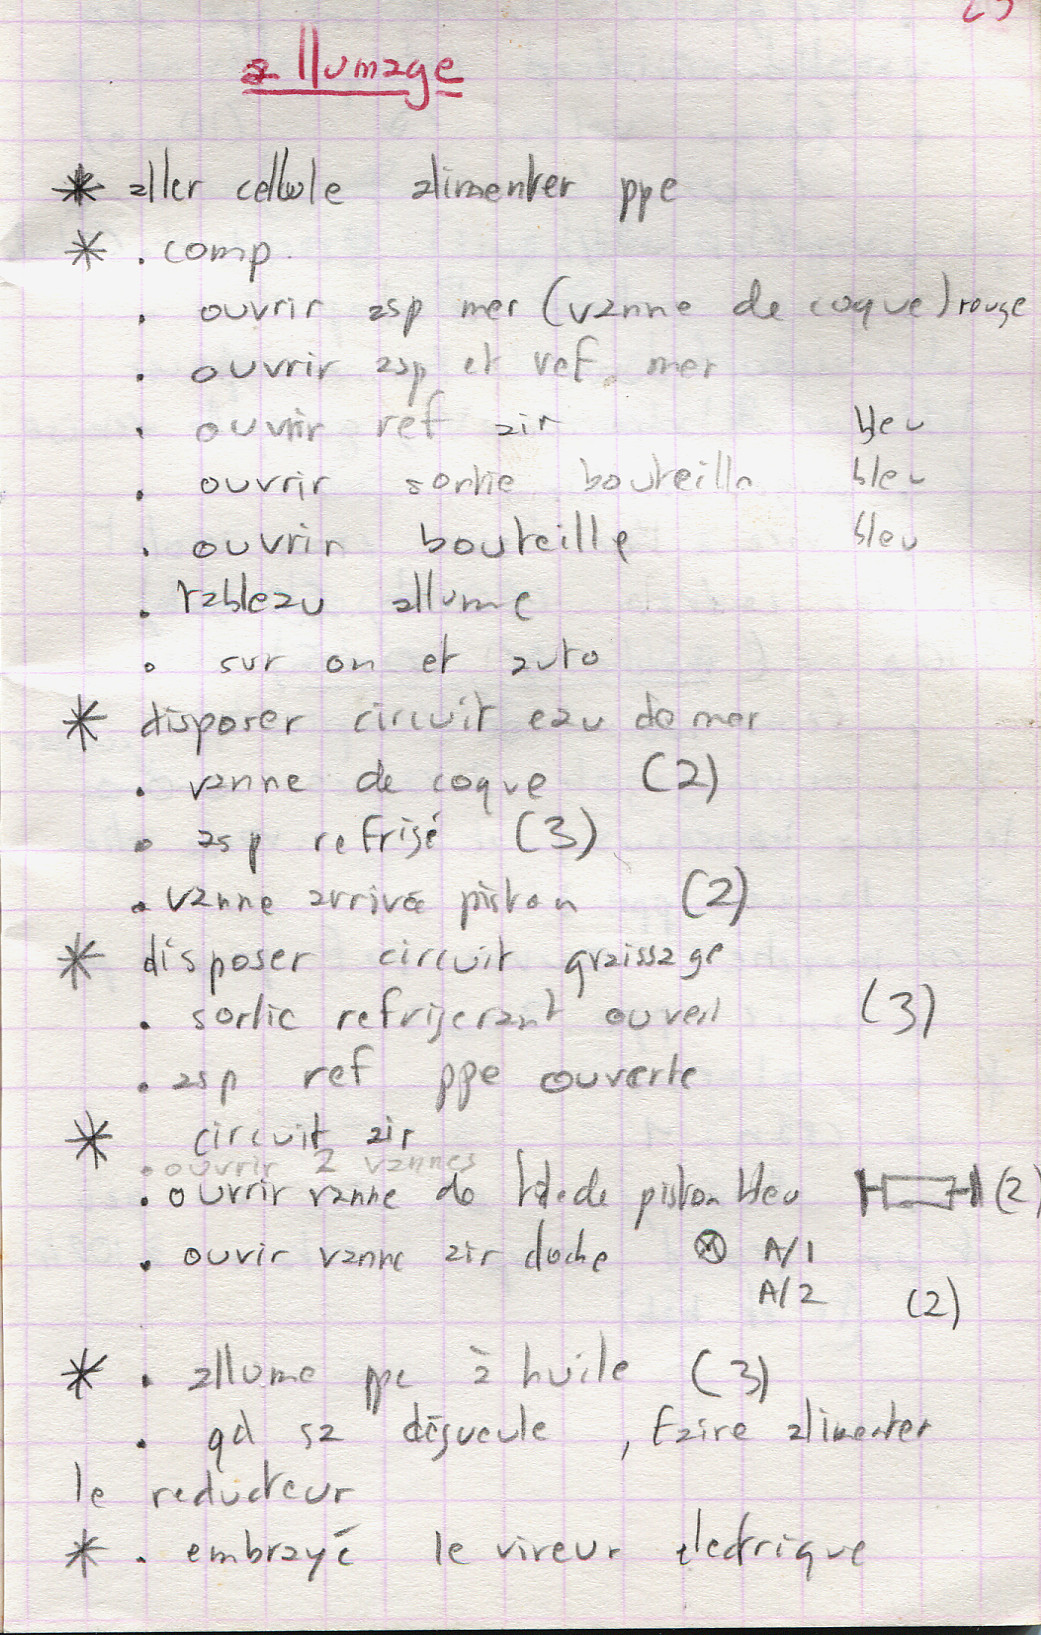 allumage
* aller cellule alimenter ppe
* . comp.
. ouvrir asp mer (vanne de coque) rouge
. ouvrir asp et ref. mer
. ouvrir ref air bleu
. ouvrir sortie bouteille bleu
. ouvrir bouteille bleu
. tableau allume
. sur on et auto
* disposer circuit eau de mer
. vanne de coque (2)
. asp refrigé (3)
. vanne arrivée piston (2)
* disposer circuit graissage
. sortie refrigerant ouvert (3)
. asp ref ppe ouverte
* circuit air
. ouvrir 2 vannes
. ouvrir vanne de piston bleu (2)
. ouvir vanne air cloche ⊗ A/1
A/2 (2)
* . allume ppe à huile (3)
. qd sa dégueule, faire alimenter
le reducteur
* . embrayé le vireur electrique